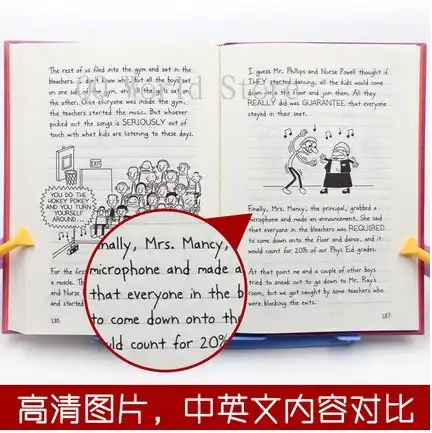 The rest of us filed into the gym and sat in the
bleachers. I don't know why, but all the boys sat
on one side of the gym, and all the girls sat on
the other. Once everyone was inside the gym,
the teachers started the music. But whoever
picked out the songs is SERIOUSLY out of
touch with what kids are listening to these days.
EXIT
YOU DO THE
HOKEY POKEY
AND YOU TURN
YOURSELF
AROUND...
For the firs
a muscle. Th
and Nurse
and started
186
I guess Mr. Phillips and Nurse Powell thought if
THEY started dancing, all the kids would come
down onto the floor and join them. All they
REALLY did was GUARANTEE that everyone
stayed in their seat.
Finally, Mrs. Mancy, the principal, grabbed a
microphone and made an announcement. She said
that everyone in the bleachers was REQUIRED
to come down onto the floor and dance, and it
would count for 20% of our Phys Ed grades.
At that point me and a couple of other boys
tried to sneak out to go down to Mr. Ray's
room, but we got caught by some teachers who
were blocking the exits.
187
nally, Mrs. Mancy,
microphone and made a
that everyone in the b
to come down onto the
uld count for 20%
高清图片，中英文内容对比